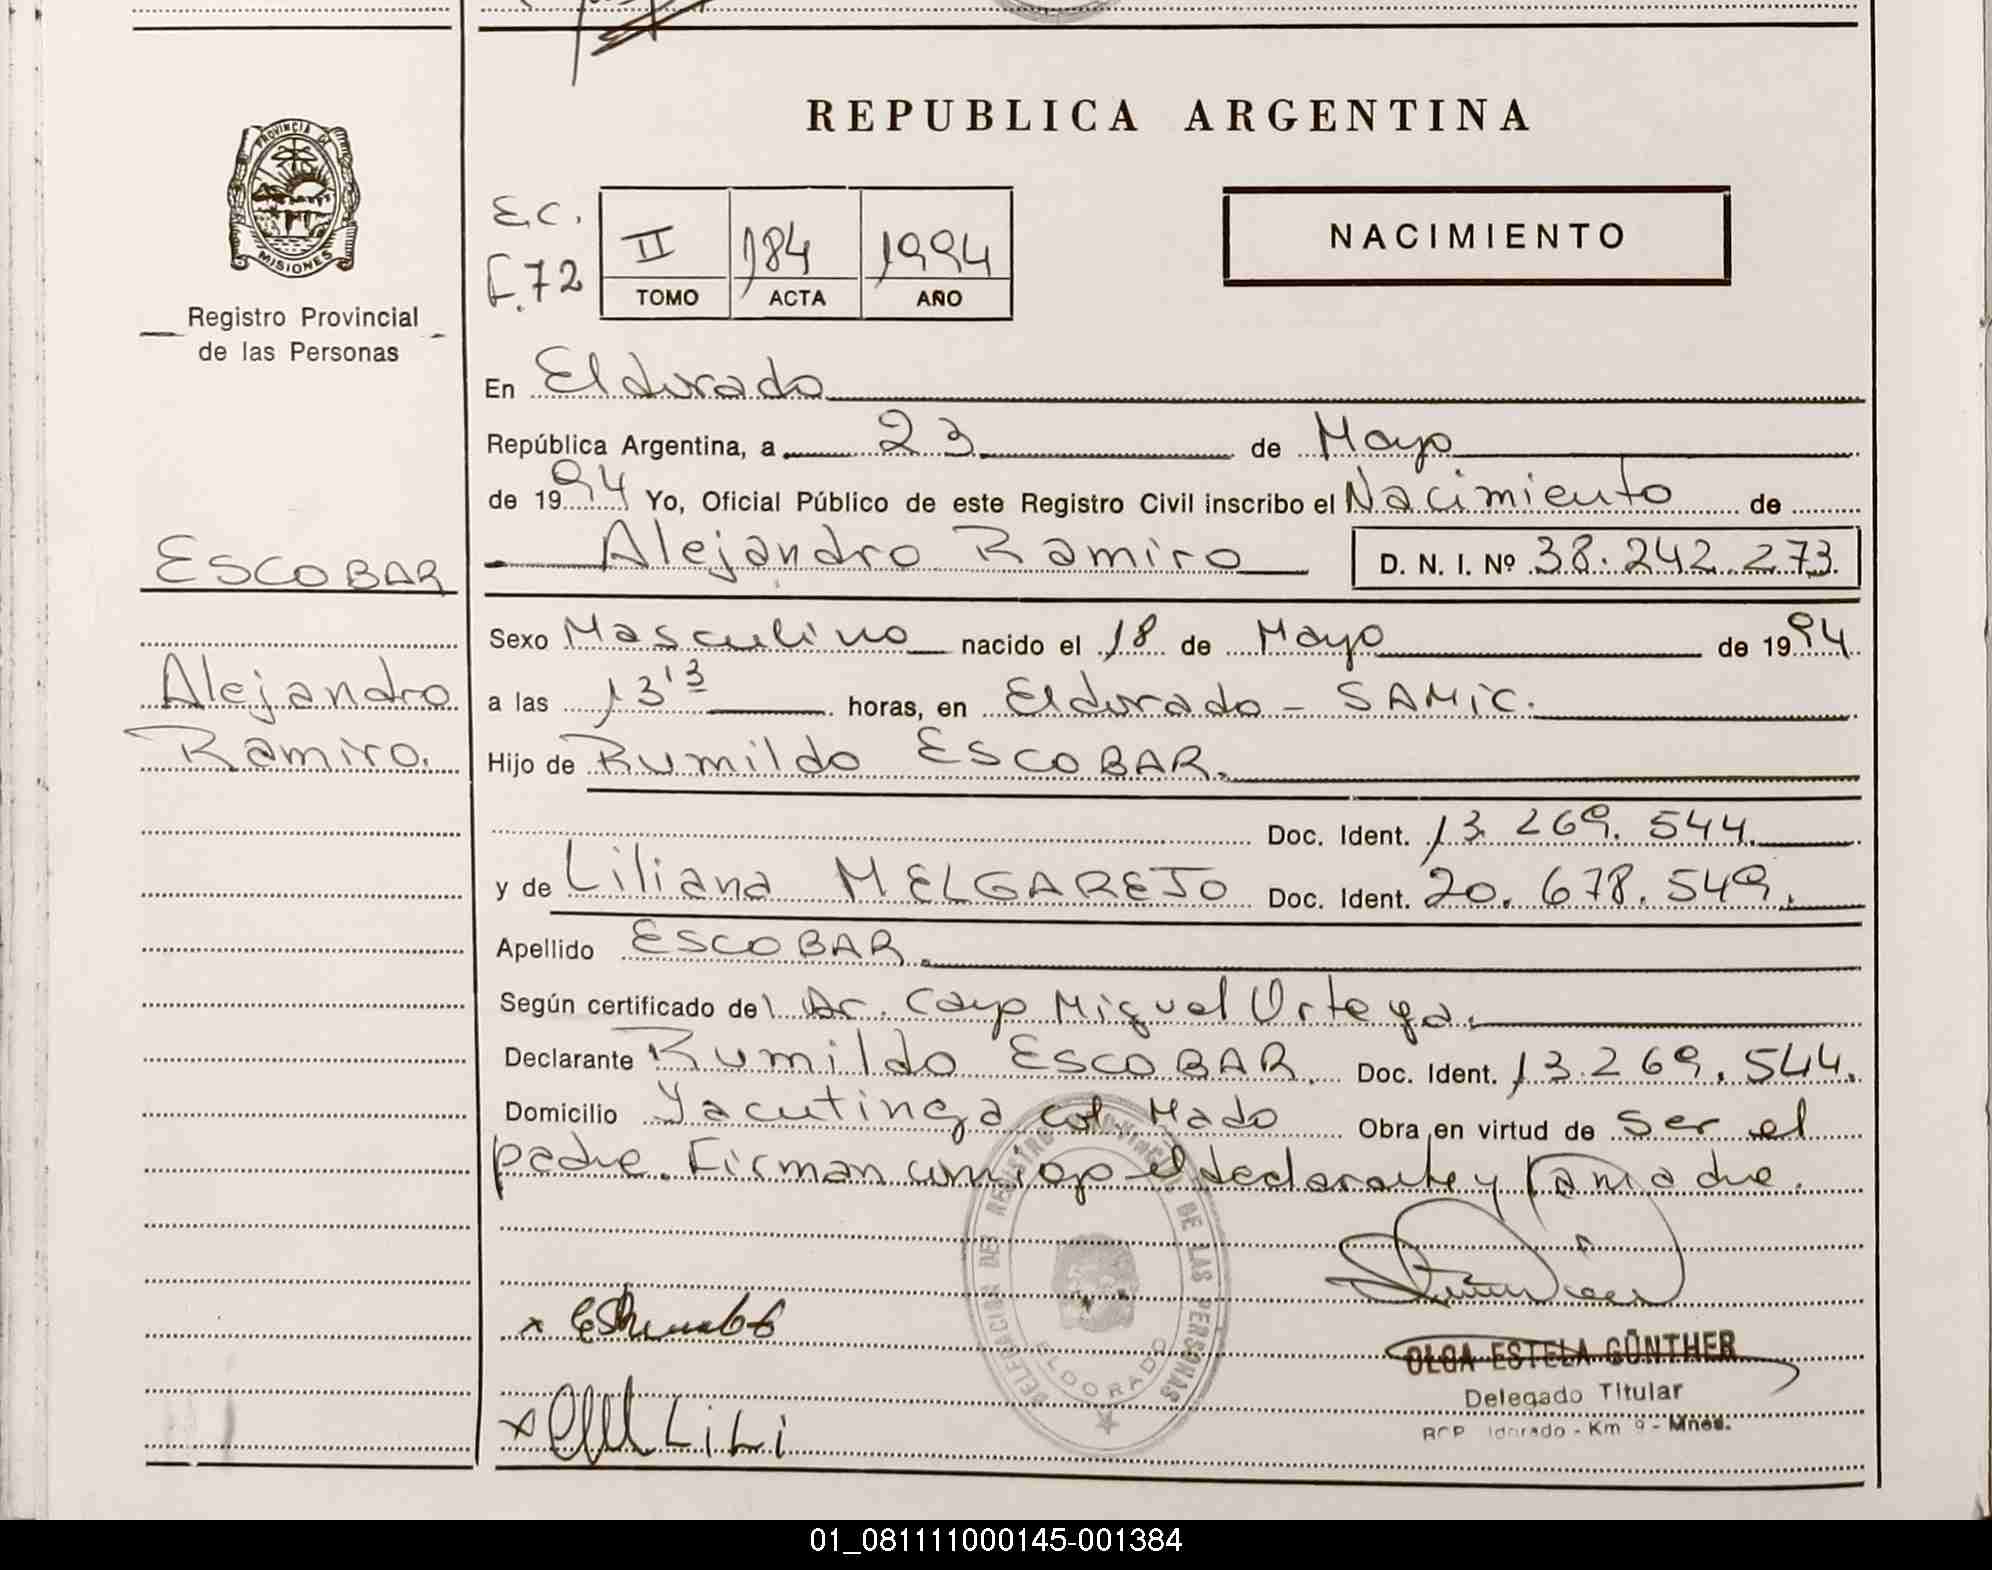 REPUBLICA ARGENTINA
PROVINCIA DE
MISIONES
Registro Provincial
de las Personas
E.C.
F.72
II 184 1994
TOMO ACTA AÑO
NACIMIENTO
En Eldorado
República Argentina, a 23 de Mayo
de 1994 Yo, Oficial Público de este Registro Civil inscribo el Nacimiento de
ESCOBAR
Alejandro Ramiro D. N. I. Nº 38.242.273
Sexo Masculino nacido el 18 de Mayo de 1994
Alejandro
Ramiro.
a las 13¹³ horas, en Eldorado - SAMIC.
Hijo de Rumildo ESCOBAR.
Doc. Ident. 13.269.544.
y de Liliana MELGAREJO Doc. Ident. 20.678.549.
Apellido ESCOBAR.
Según certificado del Dr. Cayo Miguel Ortega.
Declarante Rumildo ESCOBAR. Doc. Ident. 13.269.544.
Domicilio Yacutinga col. Mado Obra en virtud de ser el
padre. Firman conmigo el declarante y la madre.
DELEGACION DEL REGISTRO PROVINCIAL DE LAS PERSONAS
ELDORADO
OLGA ESTELA GÜNTHER
Delegado Titular
Km 9 - Mnes.
LiLi
01_081111000145-001384